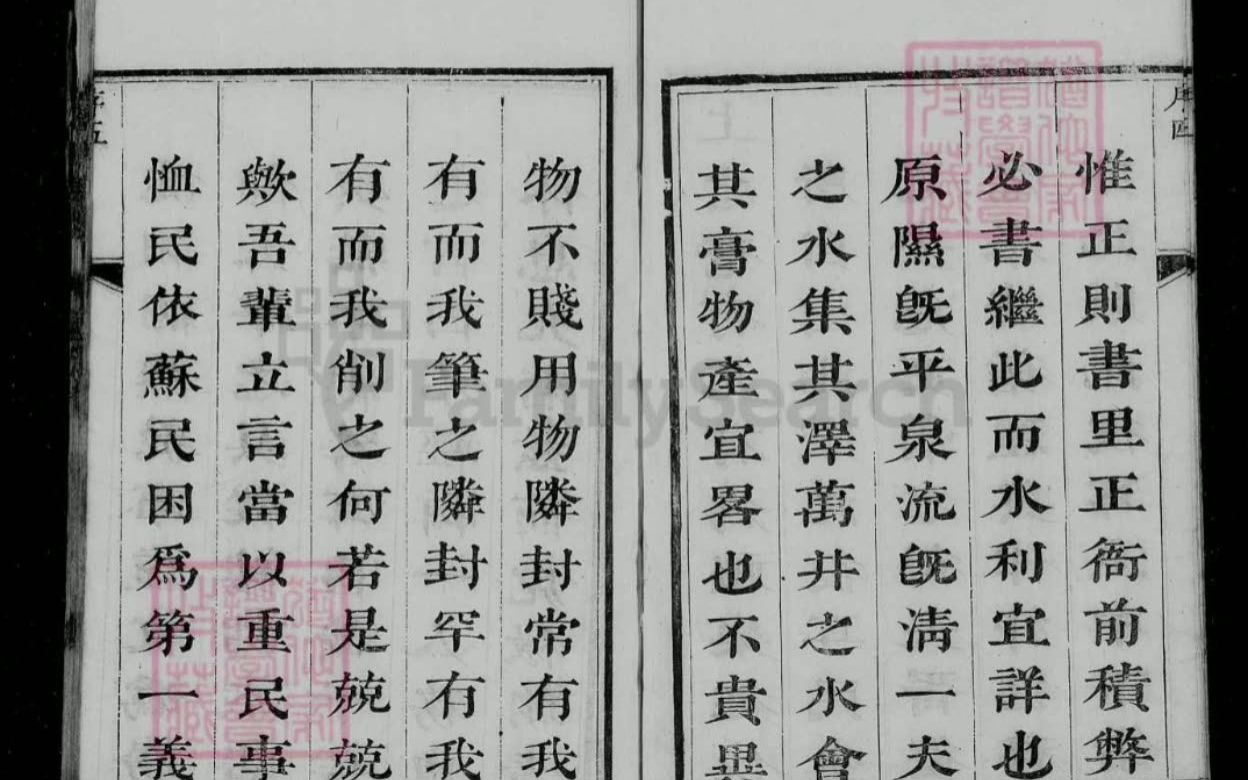 序四
惟正則書里正衙前積弊
必書繼此而水利宜詳也
原隰旣平泉流旣淸一夫
之水集其澤萬井之水會
其膏物產宜畧也不貴異
物不賤用物隣封常有我
有而我筆之隣封罕有我
有而我削之何若是兢兢
歟吾輩立言當以重民事
恤民依蘇民困爲第一義
序五
FamilySearch